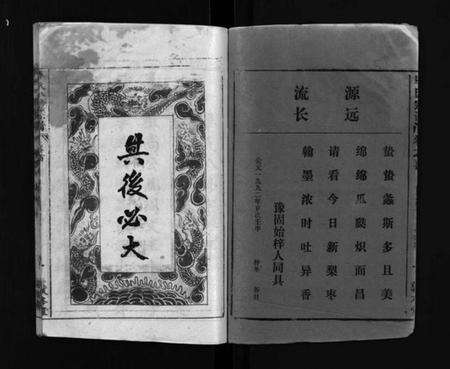 源远
流长
蛰蛰螽斯多且美
绵绵瓜瓞炽而昌
请看今日新梨枣
翰墨浓时吐异香
豫固始梓人同具
公元一九九二年岁次壬申
其後必大